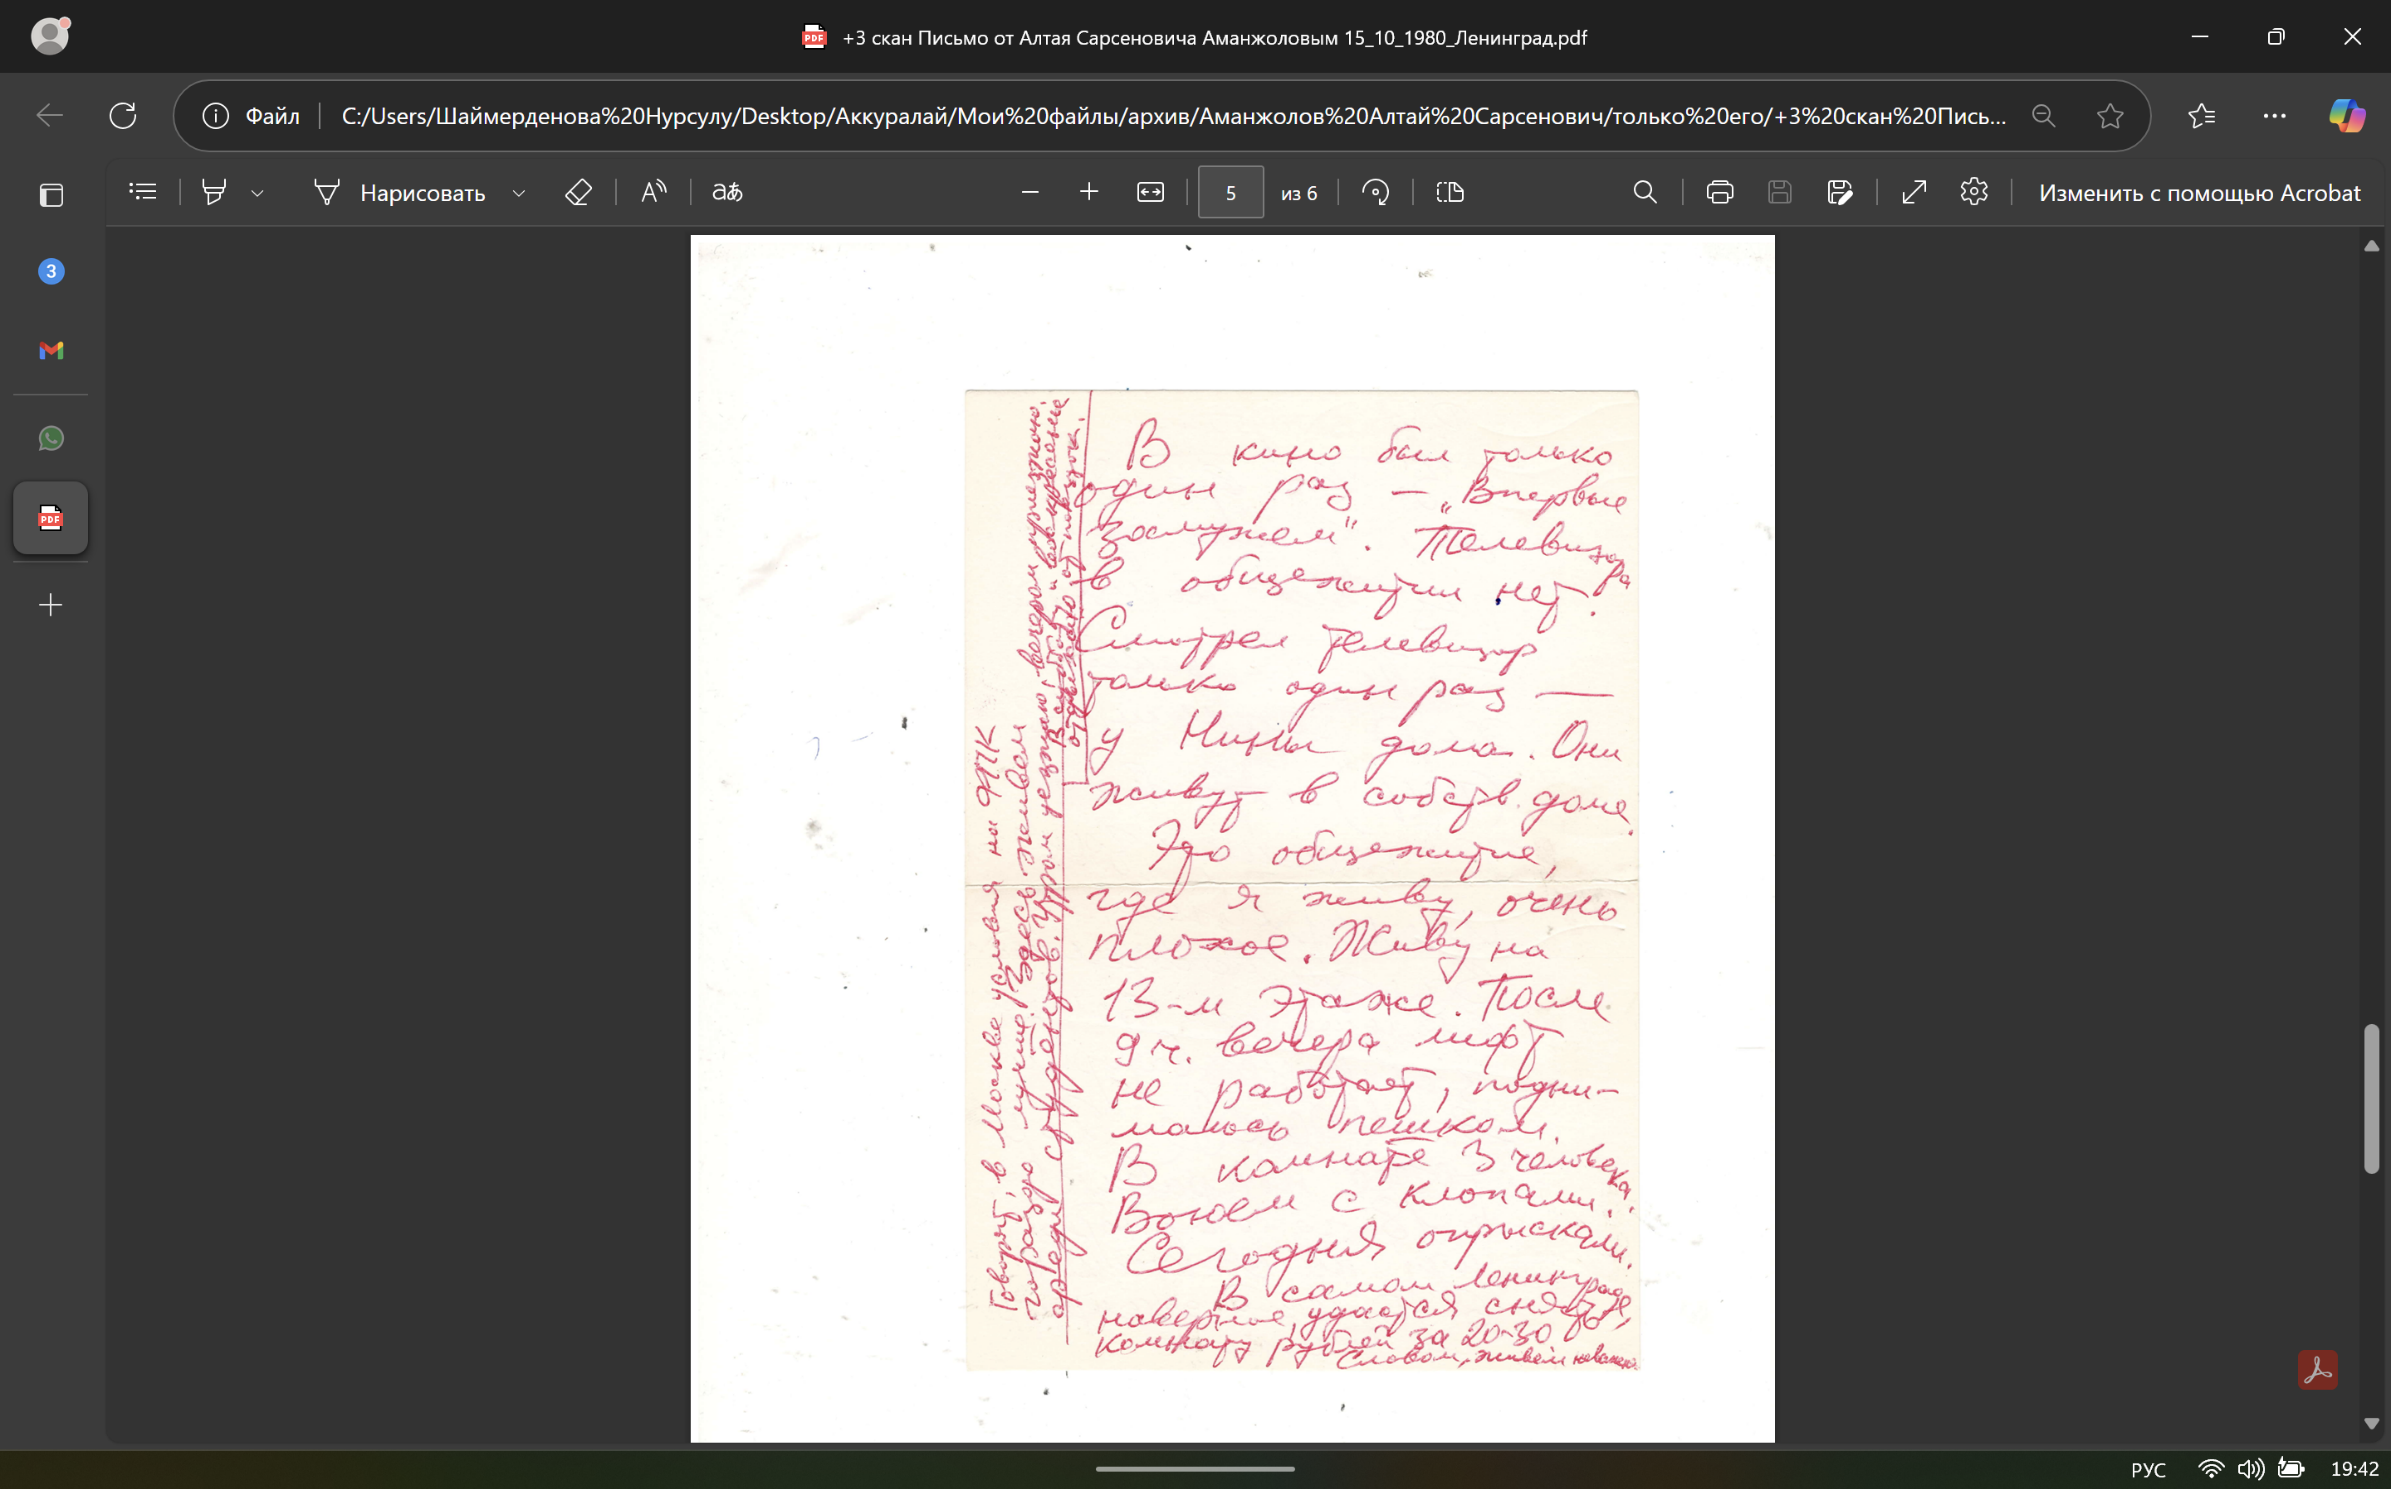 +3 скан Письмо от Алтая Сарсеновича Аманжоловым 15_10_1980_Ленинград.pdf
Файл
C:/Users/Шаймерденова%20Нурсулу/Desktop/Аккуралай/Мои%20файлы/архив/Аманжолов%20Алтай%20Сарсенович/только%20его/+3%20скан%20Пись...
Нарисовать
5 из 6
Изменить с помощью Acrobat
3
В кино был только
один раз – „Впервые
замужем". Телевизора
в общежитии нет.
Смотрел телевизор
только один раз —
у Нины дома. Они
живут в собств. доме.
Это общежитие,
где я живу, очень
плохое. Живу на
13-м этаже. После
9 ч. вечера лифт
не работает, подни-
маюсь пешком.
В комнате 3 человека.
Воюем с клопами.
Сегодня опрыскали.
В самом Ленинграде,
наверное, удастся снять
комнату рублей за 20-30
Словом, живём неважно
Говорят, в Москве условия на ФПК
гораздо лучше. Здесь живём
среди студентов. Утром уезжаю, вечером приезжаю.
В субботу и воскресенье
отдыхаю от поездок.
PDF
РУС
19:42